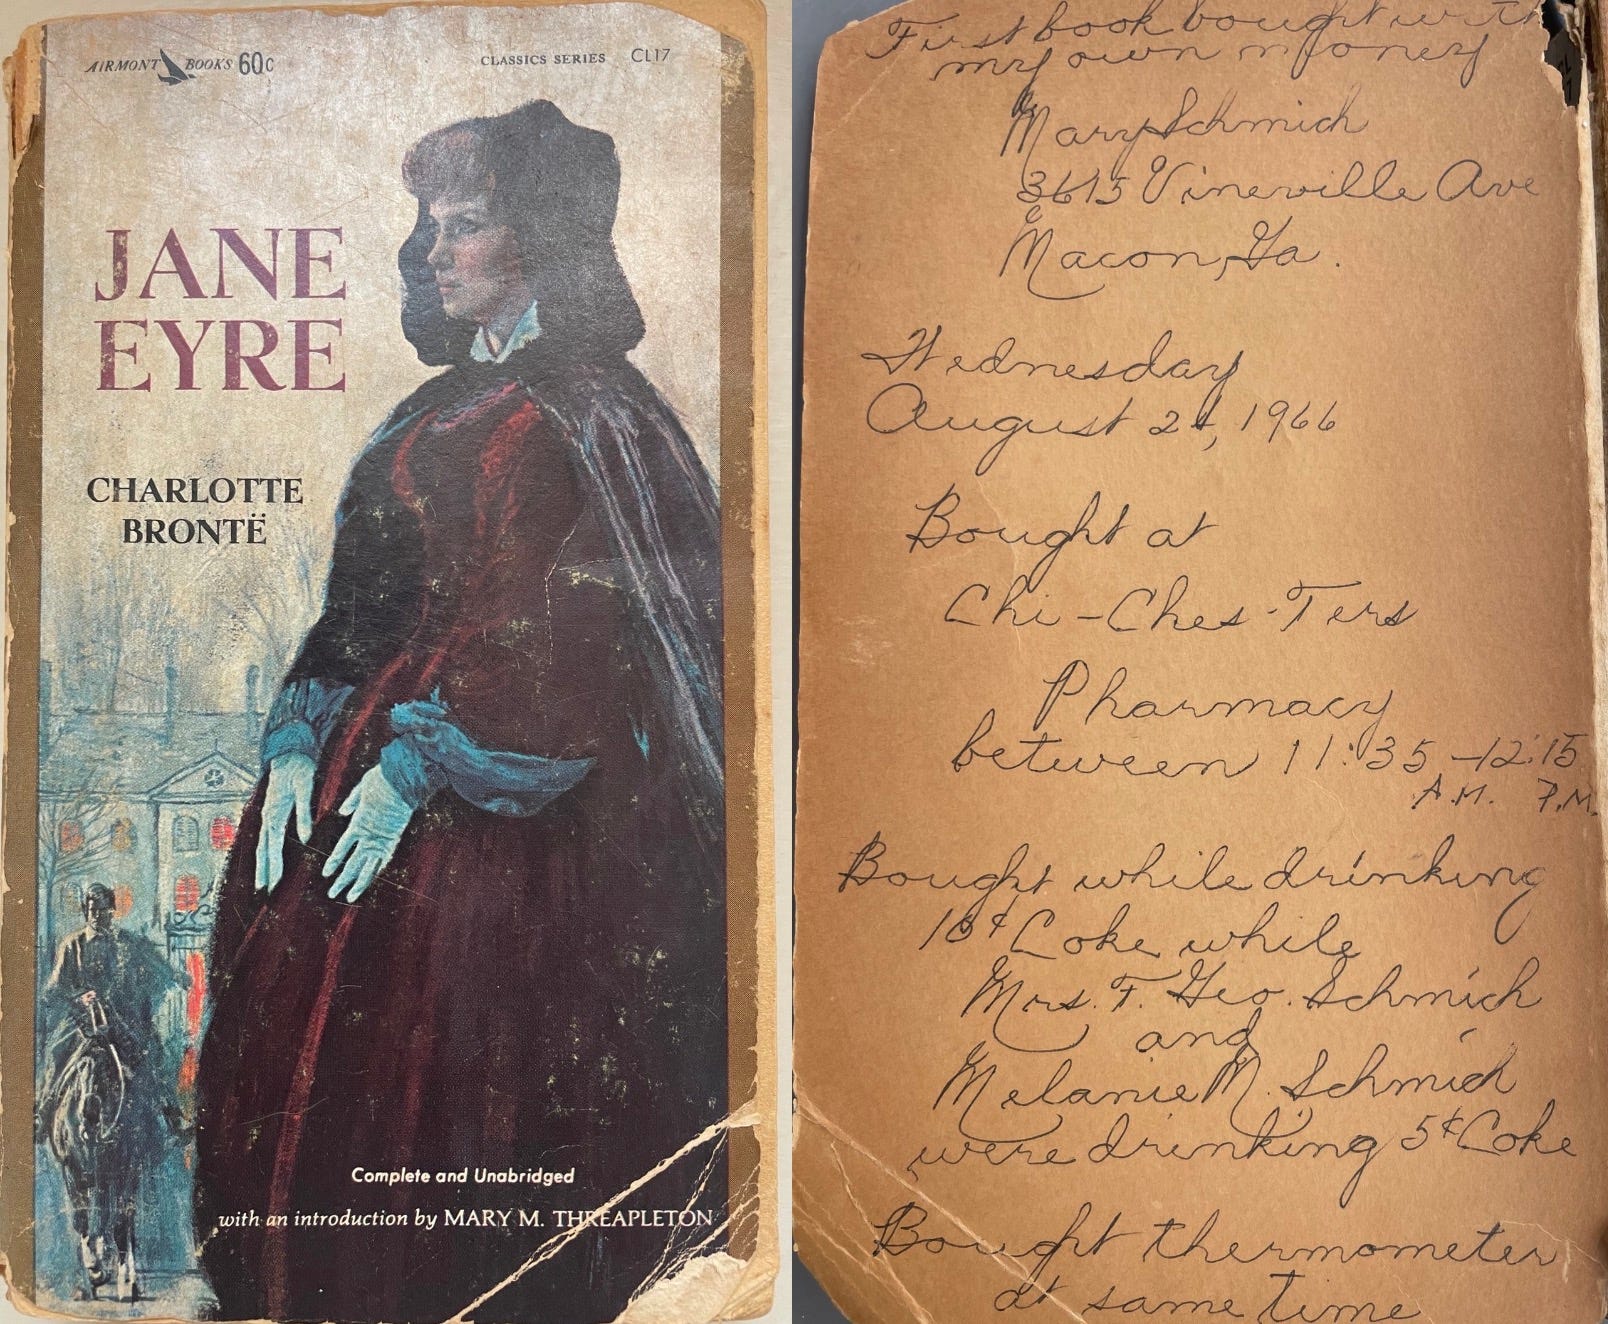 AIRMONT BOOKS 60c
CLASSICS SERIES CL17
JANE
EYRE
CHARLOTTE
BRONTË
Complete and Unabridged
with an introduction by MARY M. THREAPLETON
First book bought with
my own money
Mary Schmich
3615 Vineville Ave
Macon, Ga.
Wednesday
August 24, 1966
Bought at
Chi-Ches-Ters
Pharmacy
between 11:35 - 12:15
A.M. P.M.
Bought while drinking
10¢ Coke while
Mrs. F. Geo. Schmich
and
Melanie M. Schmich
were drinking 5¢ Coke
Bought thermometer
at same time